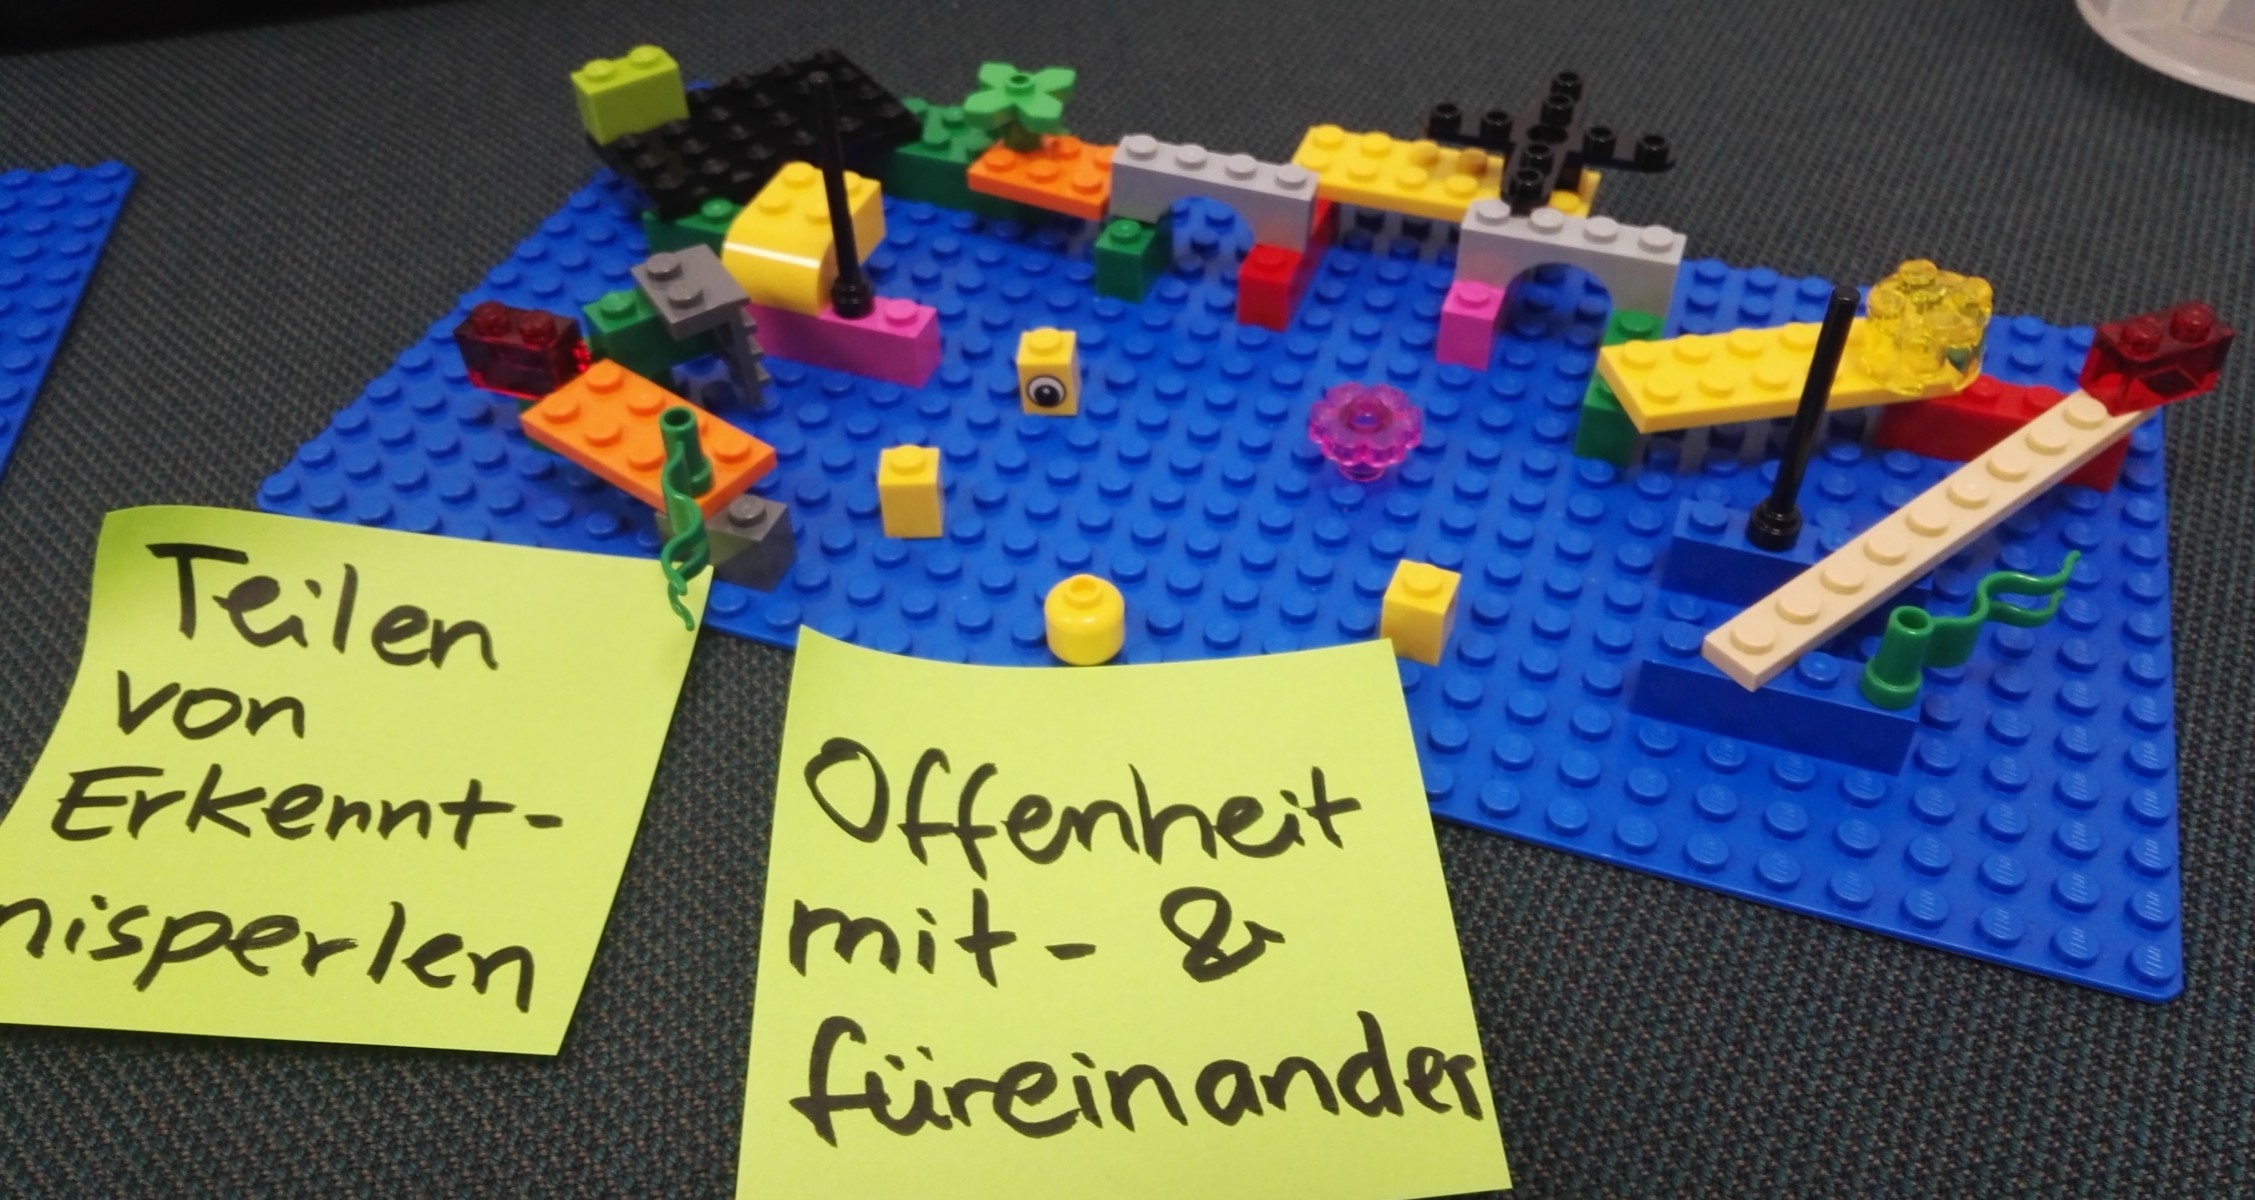 Teilen
von
Erkennt-
nisperlen
Offenheit
mit- &
füreinander